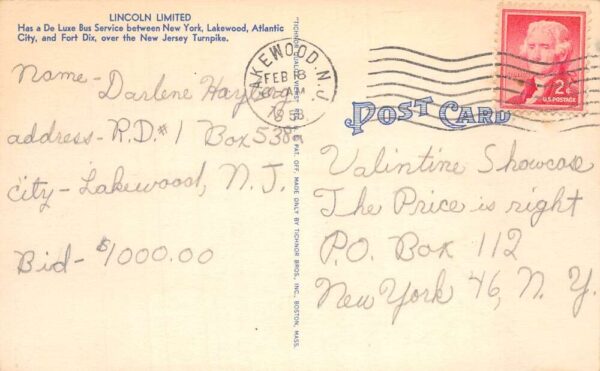 LINCOLN LIMITED
Has a De Luxe Bus Service between New York, Lakewood, Atlantic
City, and Fort Dix, over the New Jersey Turnpike.
Name- Darlene
address- R.D.#1 Box 538a
city- Lakewood, N.J.
Bid- $1000.00
PAT. OFF. MADE ONLY BY TICHNOR BROS., INC., BOSTON, MASS.
LAKEWOOD, N.J.
FEB 8
AM
2¢
U.S. POSTAGE
POST CARD
Valintine Showcase
The Price is right
P.O. Box 112
New York 46, N. Y.